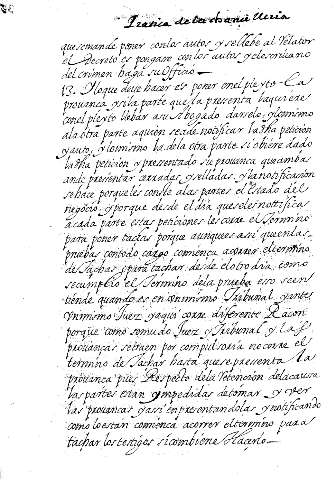 Pratica de la chancilleria
que se mande poner con los autos y se llebe al Relator
el Decreto es pongase con los autos y el escrivano
del crimen haga su officio
13. Lo que deve hacer es poner en el pleyto la
provança y si la parte que la presenta
con el pleyto llebar a su Abogado darselo y lo mismo
a la otra parte a quien se a de notificar la dha peticion
y auto, y lo mismo ha de la otra parte si obiere dado
la dha peticion y presentado su provança que ambas
an de presentar cerradas, y selladas, y la notificacion
se hace porque les conste a las partes el estado del
negocio, y porque desde el dia que se les notifica
a cada parte estas peticiones les corre el termino
para poner tachas porque aunque es asi que en las
pruebas con todo cargo comiença a correr el termino
de tachas y para tachar desde el otro dia, como
se cumplio el termino de la prueba eso se en
tiende quando es en un mismo Tribunal, y ante
un mismo Juez, y aqui corre diferente Raçon
porque como se mudo Juez y Tribunal y las
provanças se traen por compulsoria no corre el
termino de tachar hasta que se presenta la
provança pues Respecto de la Retencion de la causa
las partes estan ympedidas de tomar, y ver
las provanças y asi en presentandolas, y notificando
como lo estan comiença a correr el termino para
tachar los testigos si combiene hacerlo